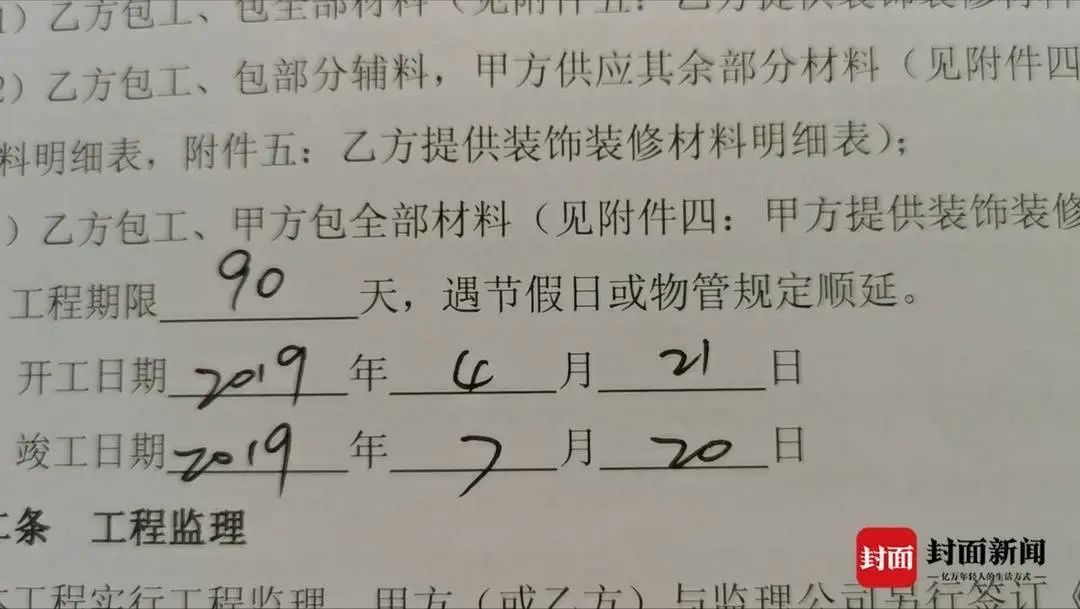 1）乙方包工、包全部材料（见附件五：乙方提供装饰装修材料
2）乙方包工、包部分辅料，甲方供应其余部分材料（见附件四
料明细表，附件五：乙方提供装饰装修材料明细表）；
）乙方包工、甲方包全部材料（见附件四：甲方提供装饰装修
工程期限90天，遇节假日或物管规定顺延。
开工日期2019年4月21日
竣工日期2019年7月20日
条 工程监理
本工程实行工程监理，甲方（或乙方）与监理公司另行签订《
封面 封面新闻
亿万年轻人的生活方式